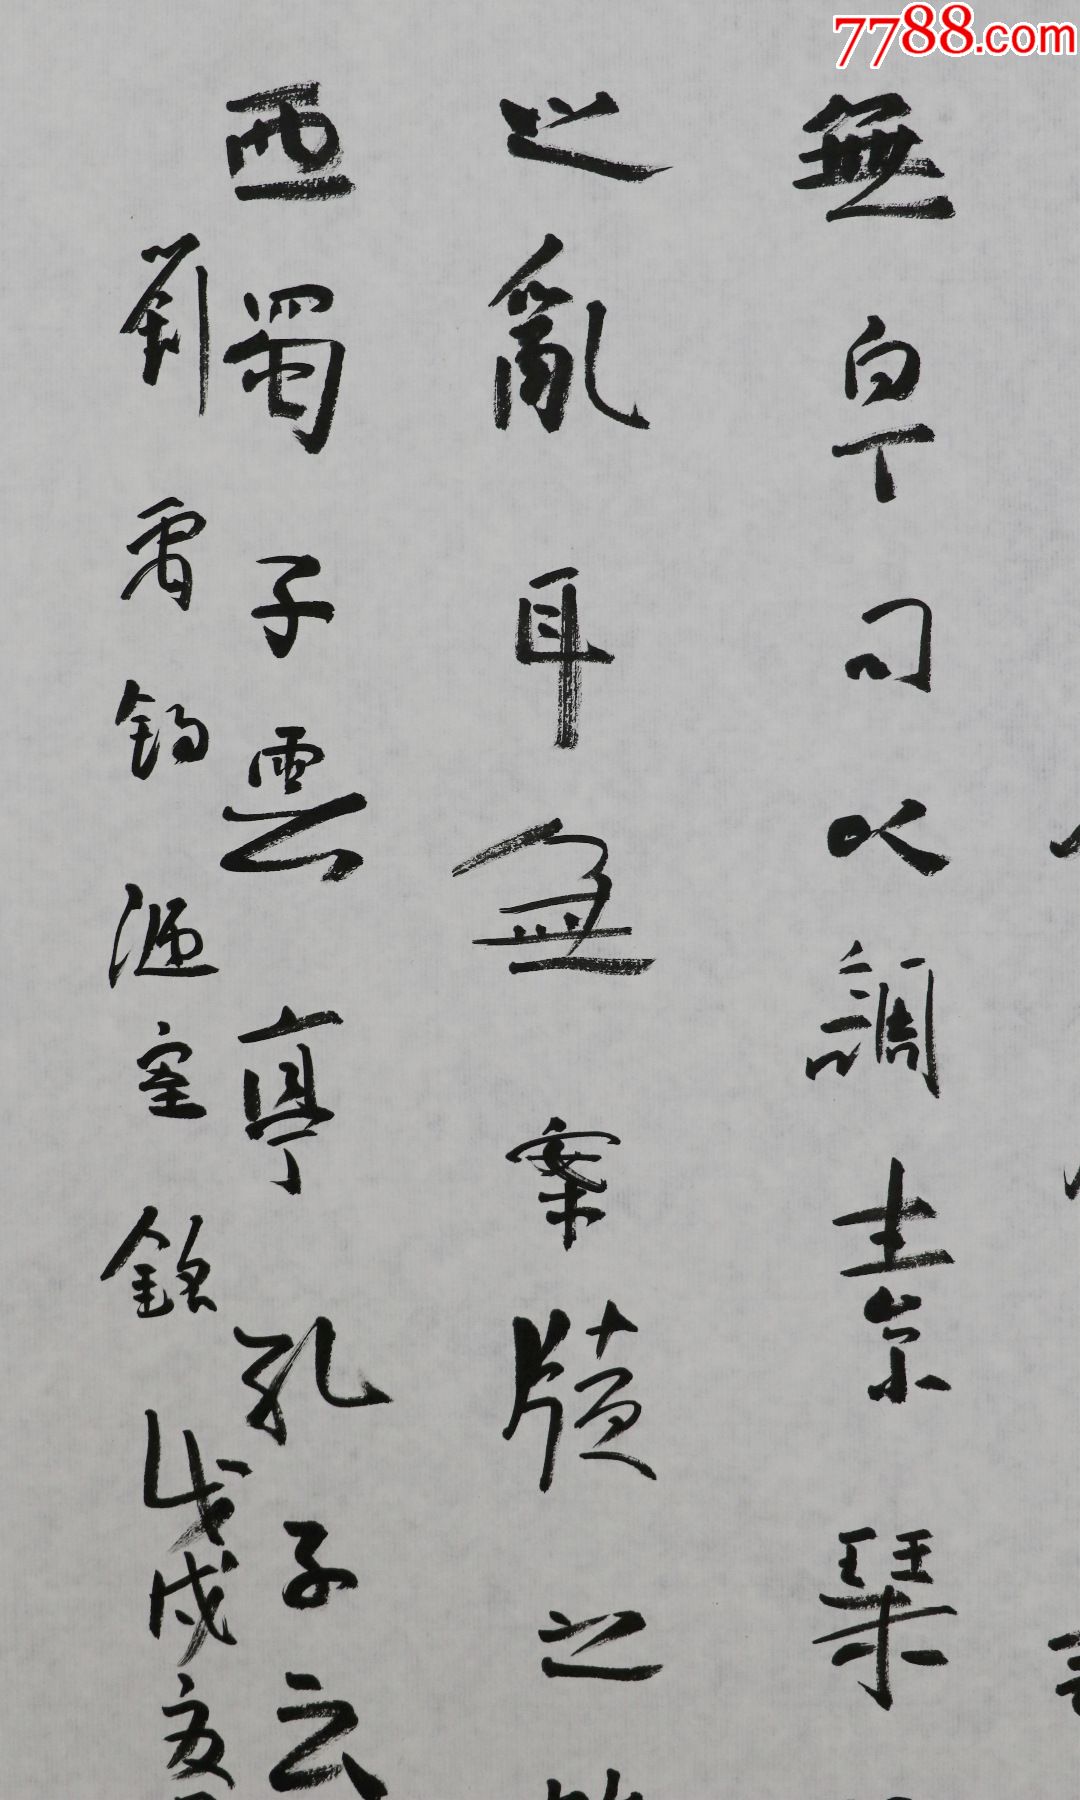 7788.com
無白丁可以調素琴
之亂耳無案牘之
西蜀子雲亭孔子云
劉禹錫陋室銘戊戌夏